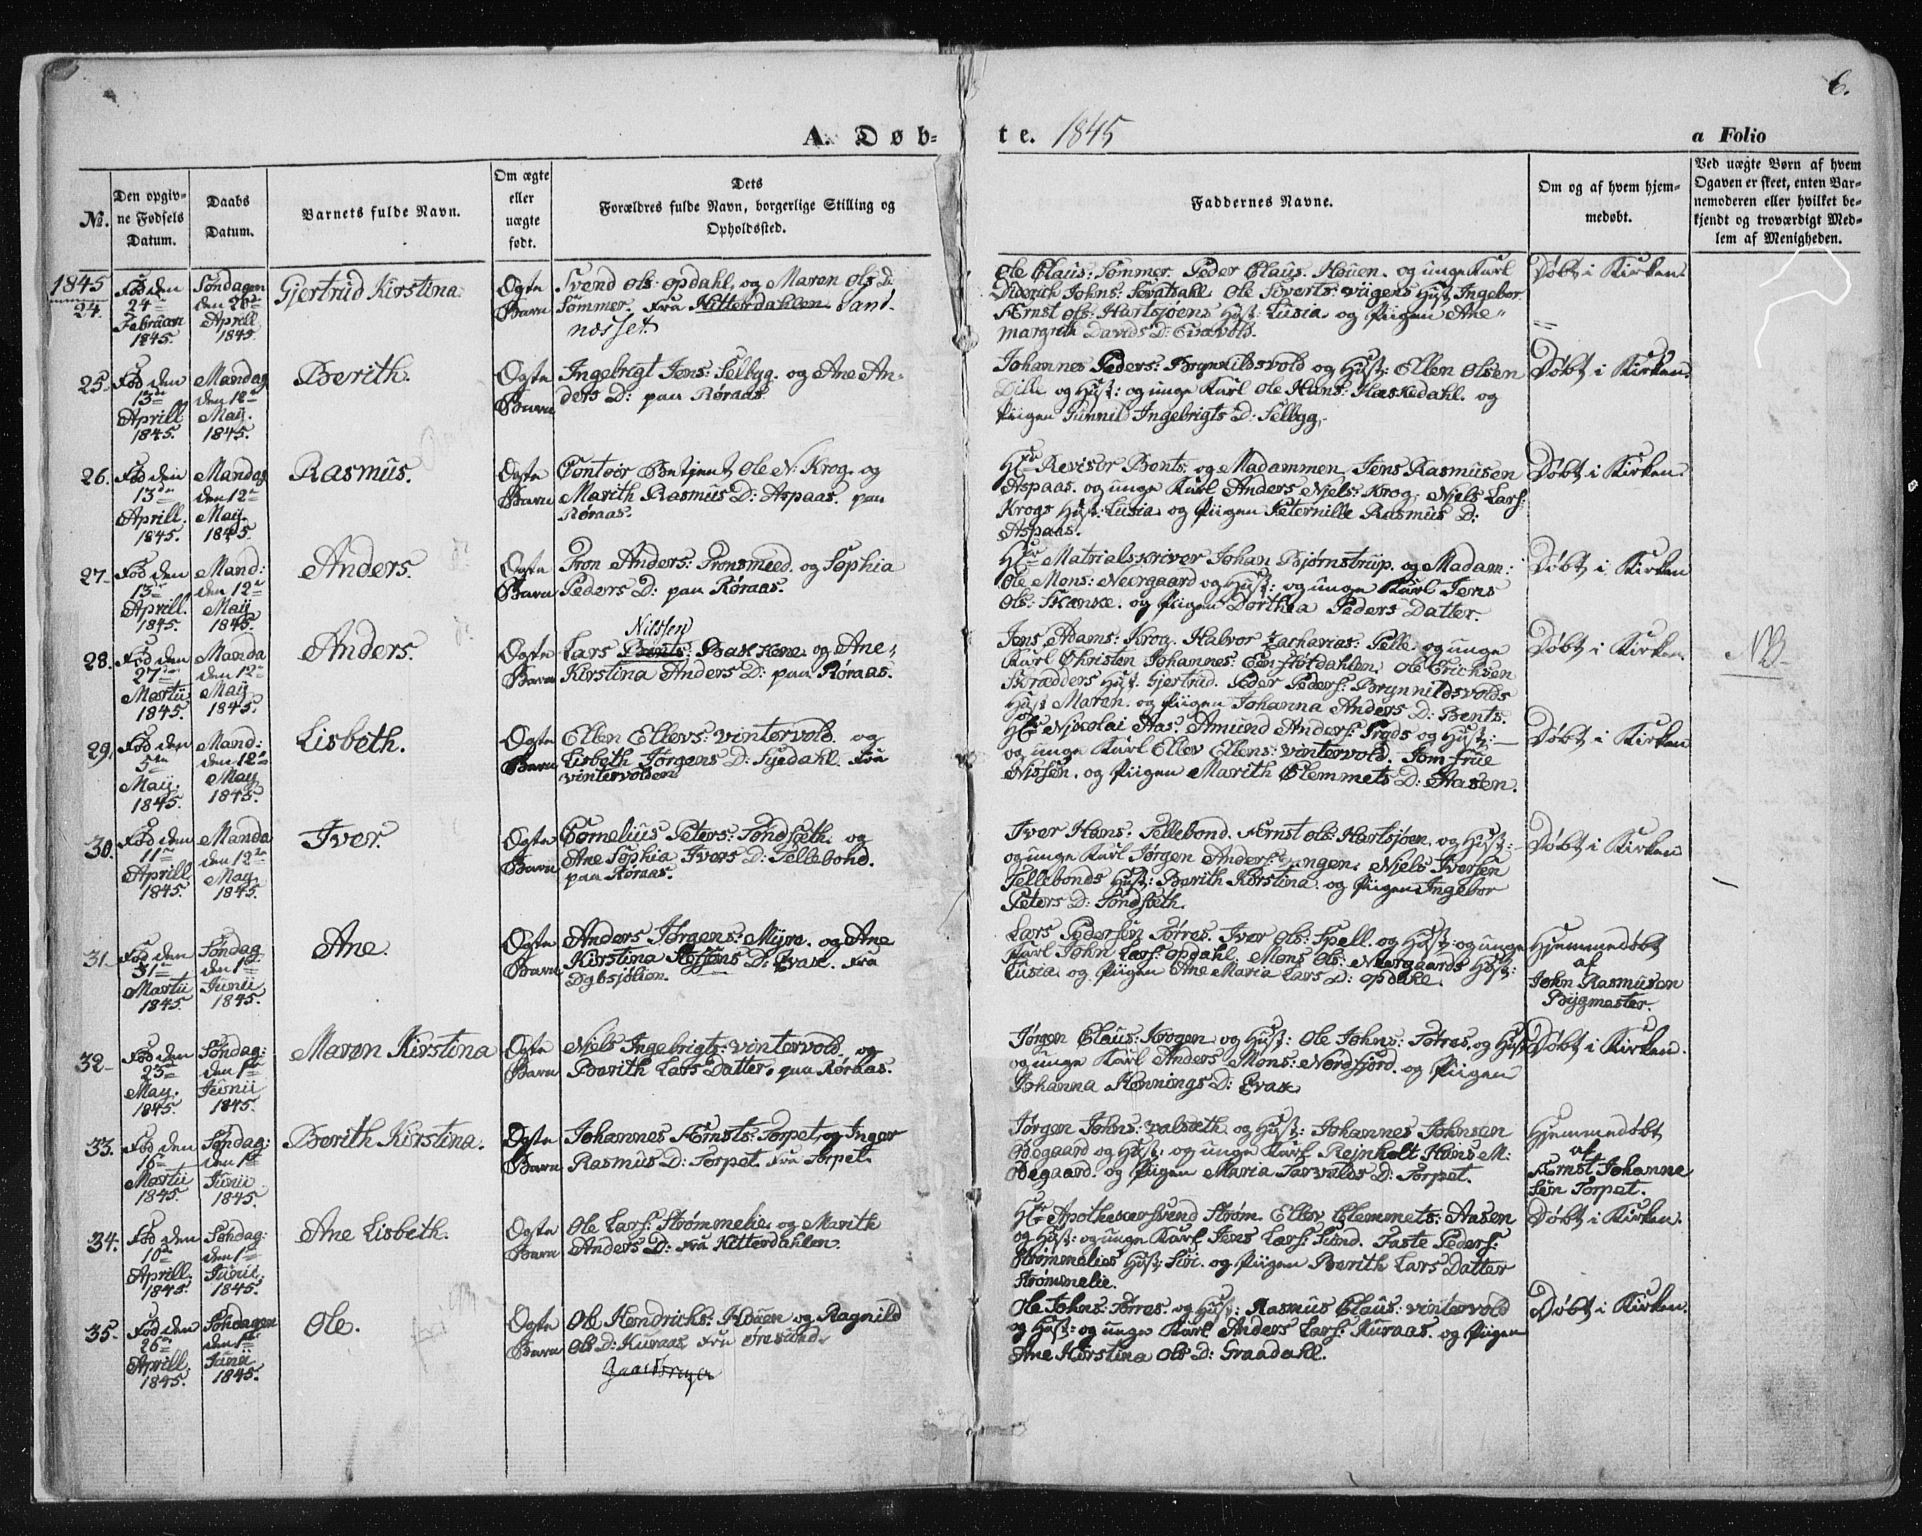 6.
A. Døb-
te. 1845
a Folio
No.
Den opgiv-
ne Fødsels
Datum.
Daabs
Datum.
Barnets fulde Navn.
Om ægte
eller
uægte
født.
Dets
Forældres fulde Navn, borgerlige Stilling og
Opholdssted.
Faddernes Navne.
Om og af hvem hjem-
medøbt.
Ved uægte Børn af hvem
Opgaven er skeet, enten Bar-
nemoderen eller hvilket be-
kjendt og troværdigt Med-
lem af Menigheden.
1845
24.
Fød den
24de
Februari
1845.
Søndagen
den 20de
Aprill
1845.
Gjertrud Kirstina.
Ægte
Barn
Svend Ols: Opdahl, og Maren Ols D:
Sømmer. fra Hitterdahlen Sant
nesset
Ole Claus: Sommer. Peder Claus: Houen. og unge Karl
Diderich Johns: Sevatdahl. Ole Siverts: Viigens Hust. Ingebor.
Ærnst Ols: Hartsjøens Hust: Lusia. og Piigen Ane
margith Davids D: Evavold.
Døbt i Kirken.
25.
Fød den
13de
Aprill
1845.
Mandag
den 12te
May.
1845.
Berith.
Ægte
Barn
Ingebrigt Jens: Selbyg. og Ane An-
ders D: paa Røraas.
Johannes Peders: Brynhildsvold og Hust: Ellen Olsen
Dille og Hust: og unge Karl Ole Hans: Haskedahl. og
Piigen Gunnild Ingebrigts D: Selbyg.
Døbt i Kirken.
26.
Fød den
13de
Aprill.
1845.
Mandag
den 12te
May.
1845.
Rasmus.
Ægte
Barn
Contoir Betjent Ole N: Krog. og
Marith Rasmus D: Aspaas. paa
Røraas.
Hr Revisor Bents: og Madammen. Jens Rasmusen
Aspaas. og unge Karl Anders Niels: Krog. Niels Lars:
Krogs Hust: Lusia. og Piigen Peternille Rasmus D:
Aspaas.
Døbt i Kirken.
27.
Fød den
13de
Aprill.
1845.
Mand:
den 12te
Maij
1845.
Anders.
Ægte
Barn
Tron Anders: Tronsmeed. og Sophia
Peders D: paa Røraas.
Hr Matrialskriver Johan Bjørnstrup. og Madam:
Ole Mons: Neergaard og Hust: og unge Karl Jens
Ols: Skanske. og Piigen Dorthea Peders Datter.
Døbt i Kirken
28.
Fød den
27de
Martii
1845.
Manda
den 12te
Maij
1845.
Anders.
Ægte
Barn
Nilssen
Lars Bents: Bakkene. og Ane
Kirstina Anders D: paa Røraas.
Jens Adams: Krog. Halvor Zacharias: Selle. og unge
Karl Christen Johannes: Galstotdahlen. Ole Erichsen
Skrædders Hust. Gjertrud. Peder Peders: Brynnildsvolds
Hust Maren. og Piigen Johanna Anders D: Bents.
Døbt i Kirken.
NB
29.
Fød den
5te
Maij:
1845.
Mand:
den 12te
May
1845.
Lisbeth.
Ægte
Barn
Ellen Ellevs: Vintervold. og
Lisbeth Jørgens D: Syedahl. fra
Vintervolden
Hr Nicolai Aas. Amund Anders: Trøds og Hust:
og unge Karl Ellev Ellens: Vintervold. Jomfrue
Nissen. og Piigen Marith Clemmets D: Aasen.
Døbt i Kirken
30.
Fød den
11te
Aprill
1845.
Manda
den 12te
May.
1845.
Iver.
Ægte
Barn
Cornelius Peters: Tondseth. og
Ane Sophia Ivers D: Sellebond.
paa Røraas.
Iver Hans: Sellebond. Ærnst Ols: Hartsjøen. og Hust:
og unge Karl Jørgen Anders: Engen. Niels Iversen
Sellebonds Hust: Berith Kirstina. og Piigen Ingebor
Peters D: Tondseth.
Døbt i Kirken
31.
Fød den
31te
Martii
1845.
Søndag
den 1ste
Junii
1845.
Ane.
Ægte
Barn
Anders Jørgens: Myra. og Ane
Kirstina D: Evax. fra
Dybsjølien.
Lars Pedersen Torres. Iver Ols: Spell. og Hust: og unge
Karl John Lars: Opdahl. Mons Ols: Neergaards Hust:
Lusia. og Piigen Ane Maria Lars D: Opdahl.
Hjemmedøbt
af
John Rasmusen
Bygmester.
32.
Fød den
23de
May.
1845.
Søndag:
den 1ste
Junii
1845.
Maren Kirstina
Ægte
Barn
Niels Ingebrigts: Vintervold. og
Berith Lars Datter. paa Røraas.
Jørgen Claus: Krogen og Hust: Ole Johns: Torres. og Hust
og unge Karl Anders Mons: Nordfjord. og Piigen
Johanna Hennings D: Evax
Døbt i Kirken.
33.
Fød den
16de
Martii
1845.
Søndag:
den 1ste
Junii
1845.
Berith Kirstina.
Ægte
Barn
Johannes Ærnsts: Torpet. og Inger
Rasmus D: Torpet. fra Torpet.
Jørgen Johns: Valseth. og Hust: Johannes Johnsen
Ødegaard og Hust: og unge Karl Rejnholt Hans M:
Ødegaard. og Piigen Maria Torvalds D: Torpet.
Hjemmedøbt
af
Ærnst Johanne
Sen Torpet.
34.
Fød den
10de
Aprill
1845.
Søndag:
den 1ste
Junii.
1845.
Ane Lisbeth.
Ægte
Barn
Ole Lars: Strømmelie. og Marith
Anders D: fra Hitterdahlen.
Hr Apotheker Svend Strøm. Ellev Clemmets: Aasen
og Hust: og unge Karl Jens Lars: Sund. Taste Peders:
Strømmelies Hust: Siri. og Piigen Berith Lars Datter
Strømmelie.
Døbt i Kirken.
35.
Fød den
26de
Aprill
1845.
Søndagen
den 1ste
Junii
1845.
Ole.
Ægte
Barn
Ole Hendrichs: Houen og Ragnild
Ols D: Kuraas fra Øresund.
Ole Johns: Torres. og Hust: Rasmus Claus: Vintervold
og Hust: og unge Karl Anders Lars: Kuraas. og Piigen
Ane Kirstina Ols D: Graadahl.
Døbt i Kirken.